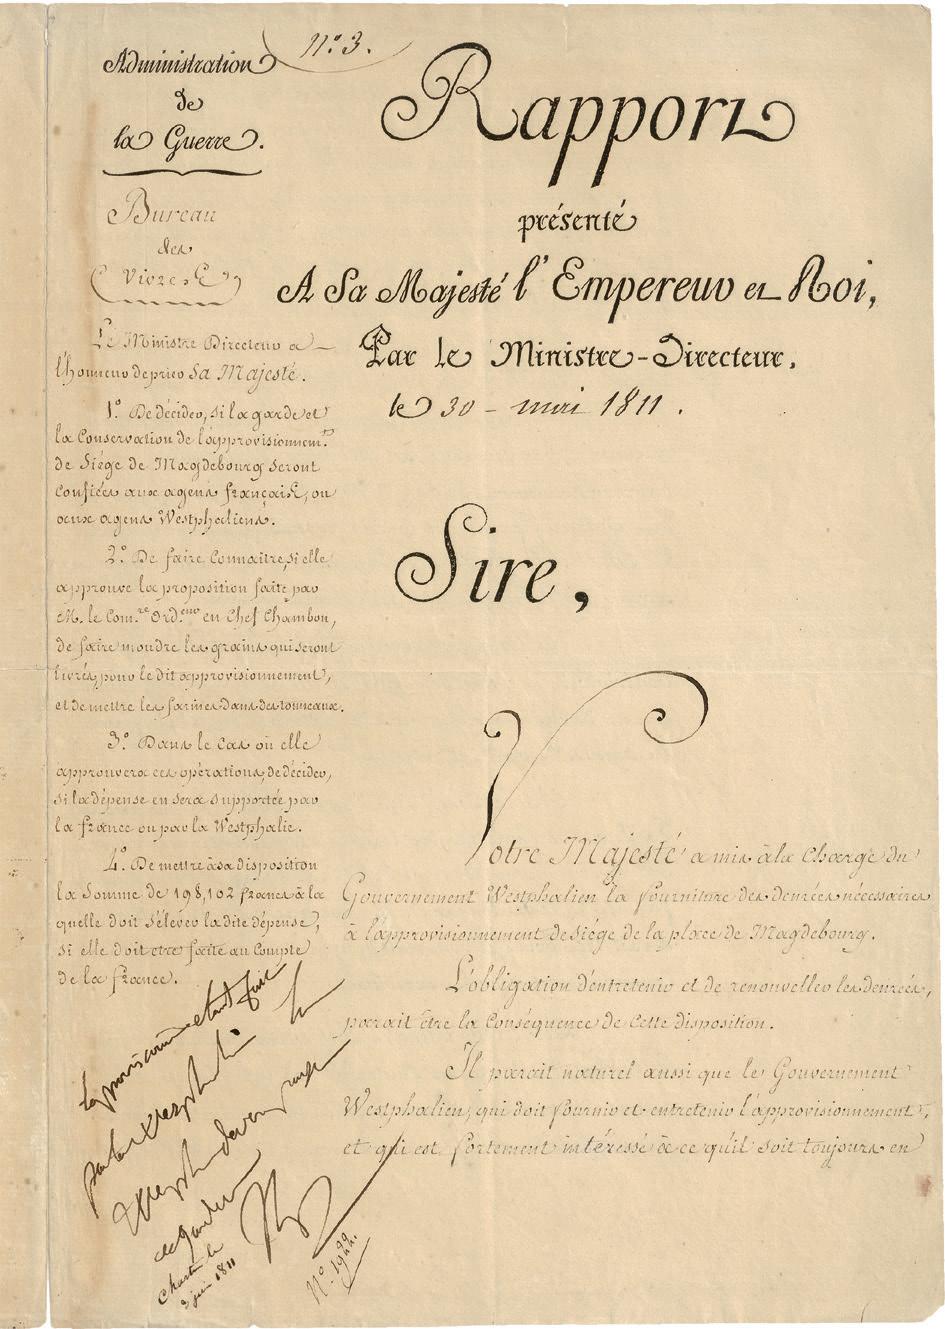 N.o 3.
Administration
de
la Guerre.
Bureau
des
Vivres
Le Ministre Directeur a
l'honneur de prier Sa Majesté.
1.o De décider, si la garde et
la Conservation de l'approvisionnem.t
de Siége de Magdebourg seront
confiées aux agens français, ou
aux agens Westphaliens.
2.o De faire Connaitre, si elle
approuve la proposition faite par
M. le Com.re Ord.eur en Chef Chambon,
de faire moudre les grains qui seront
livrés, pour le dit approvisionnement,
et de mettre les farines dans des tonneaux.
3.o Dans le cas où elle
approuvera ces opérations, de décider,
si la dépense en sera supportée par
la france ou par la Westphalie.
4.o De mettre à sa disposition
la Somme de 198,102 francs à la
quelle doit s'élever la dite dépense,
si elle doit etre faite au Compte
de la france.
Rapport
présenté
A Sa Majesté l'Empereur et Roi,
Par le Ministre-Directeur.
le 30 - mai 1811.
Sire,
Votre Majesté a mis à la Charge du
Gouvernement Westphalien la fourniture des denrées nécessaires
à l'approvisionnement de Siége de la place de Magdebourg.
L'obligation d'entretenir et de renouveller les denrées,
parait être la Conséquence de Cette disposition.
Il parait naturel aussi que le Gouvernement
Westphalien, qui doit fournir et entretenir l'approvisionnement,
et qui est fortement intéressé à ce qu'il soit toujours en
étant fait
par la
le
3 juin 1811
N.o 1922.